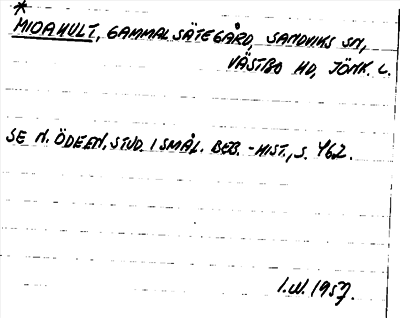 *
MIOAHULT, GAMMAL SÄTEGÅRD, SANDVIKS SN,
VÄSTBO HD, JÖNK. L.
SE N. ÖDEEN, STUD. I SMÅL. BEB. -HIST., S. 462.
I.W. 1957.